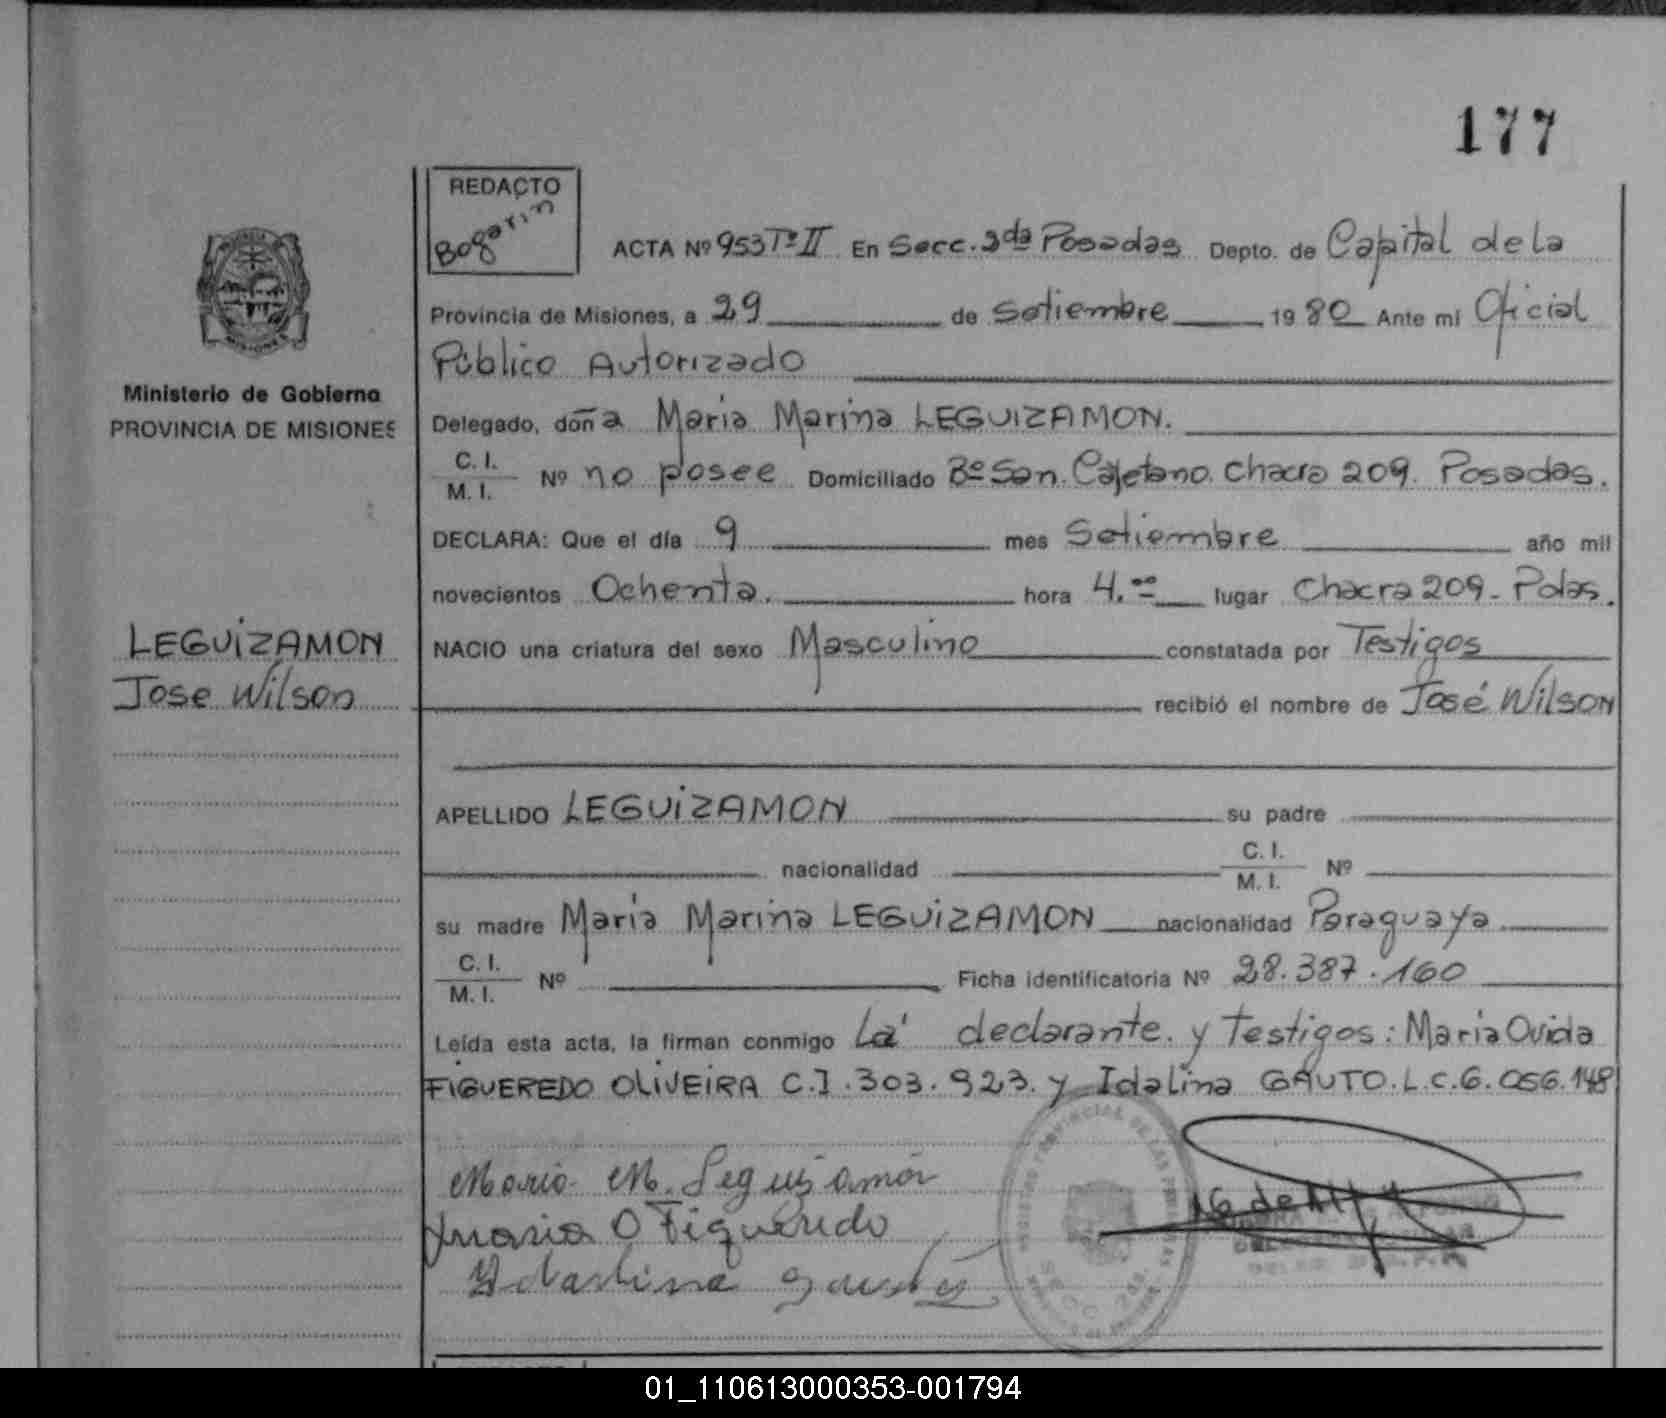 177
REDACTO
Bogarin
ACTA Nº 953 Tº II En Secc. 2da Posadas Depto. de Capital de la
Provincia de Misiones, a 29 de Setiembre 1980 Ante mi Oficial
Público Autorizado
Ministerio de Gobierno
PROVINCIA DE MISIONES
Delegado, doña Maria Marina LEGUIZAMON.
C. I.
M. I.
Nº no posee Domiciliado Bº San. Cajetano. Chacra 209. Posadas.
DECLARA: Que el día 9 mes Setiembre año mil
novecientos Ochenta. hora 4.00 lugar Chacra 209 - Pdas.
LEGUIZAMON
Jose Wilson
NACIO una criatura del sexo Masculino constatada por Testigos
recibió el nombre de José Wilson
APELLIDO LEGUIZAMON su padre
nacionalidad C. I. M. I. Nº
su madre Maria Marina LEGUIZAMON nacionalidad Paraguaya
C. I.
M. I.
Nº Ficha identificatoria Nº 28.387.160
Leída esta acta, la firman conmigo La declarante. y Testigos: Maria Ovida
FIGUEREDO OLIVEIRA C.I. 303.923. y Idalina GAUTO. L.C. 6.056.148
Maria M. Leguizamón
Maria O Figueredo
01_110613000353-001794